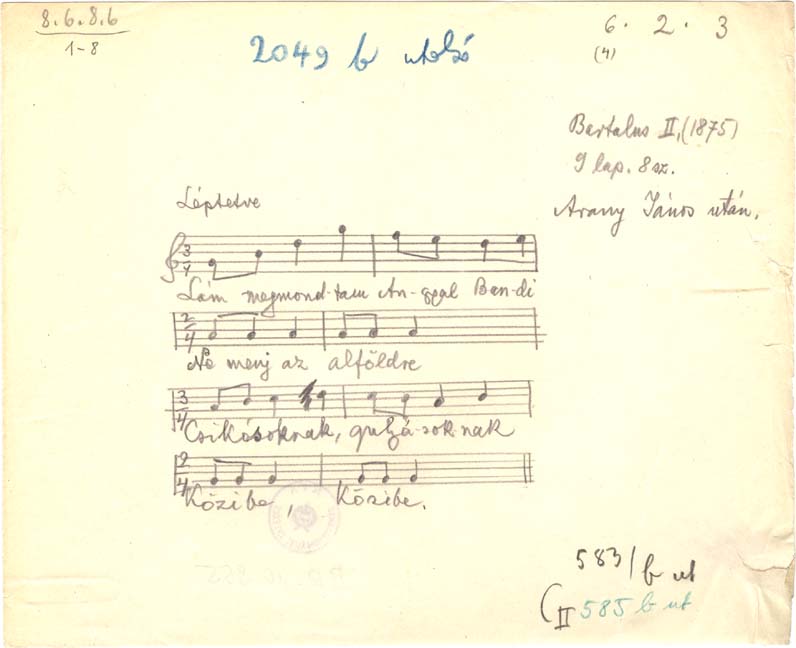 8.6.8.6
1-8
6. 2. 3
(4)
2049 b utolsó
Bartalus II, (1875)
9 lap. 8 sz.
Arany János után.
Léptetve
3/4
Lám megmond-tam An-gyal Ban-di
2/4
Ne menj az alföldre
3/4
Csikósoknak, gulyá-sok-nak
2/4
Közibe, Közibe.
583/b ut
(II 585 b ut